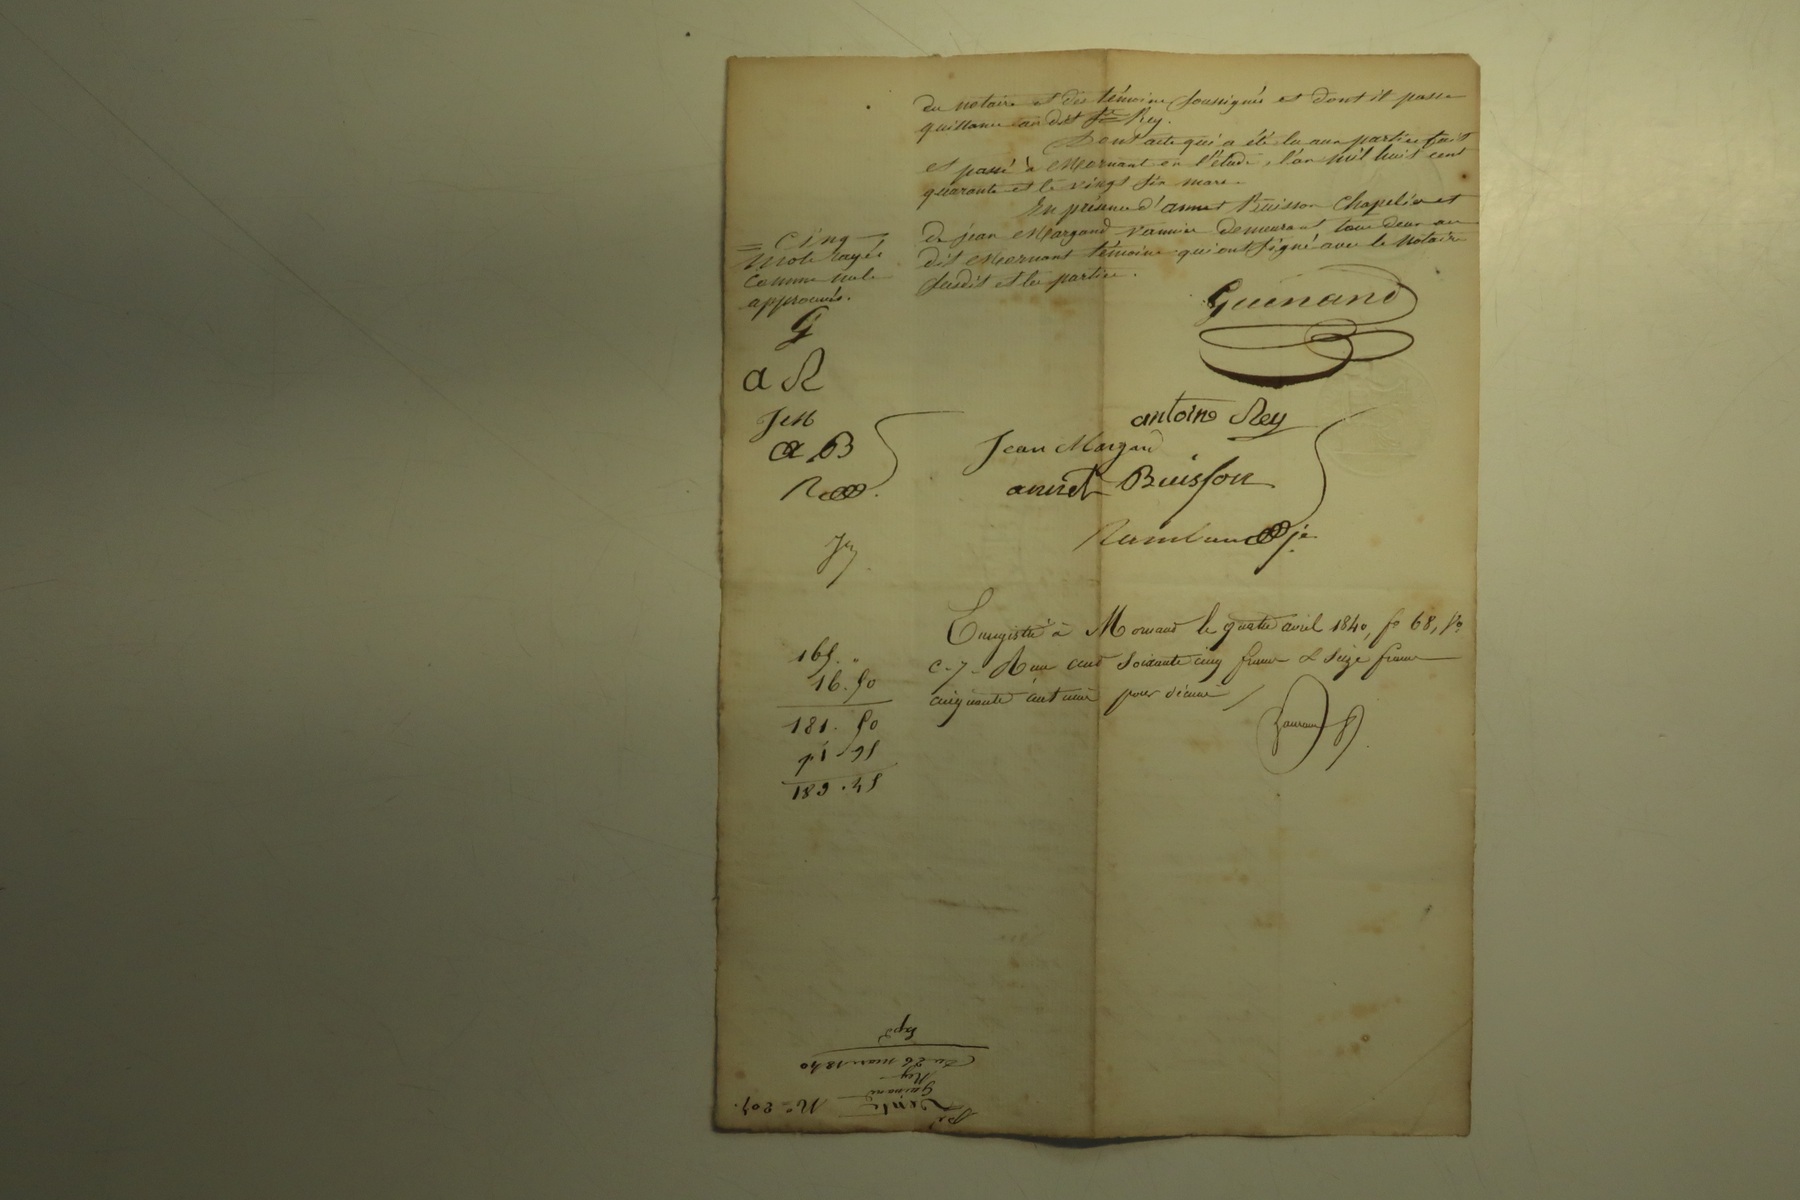 du notaire et des témoins soussignés et dont il passe
quittance au dit Sr Rey.
Dont acte qui a été lu aux parties fait
et passé à Mornant en l'étude, l'an mil huit cent
quarante et le vingt six mars.
En présence d'annet Buisson Chapelier et
de jean Margand vannier demeurant tous deux au
dit Mornant témoins qui ont signé avec le notaire
susdit et les parties.
= Cinq =
mots rayés
comme nuls
approuvés.
G
a R
JM
a B
Guenand
antoine Rey
Jean Margand
annet Buisson
Enregistré à Mornant le quatre avril 1840, fo 68, Vo
c. 7. Reçu cent soixante cinq francs & seize francs
cinquante centimes pour décime
165. "
16. 50
181. 50
1. 95
183. 45
No 207.
Vente
Guenand
Rey
Du 26 mars 1840
Expd